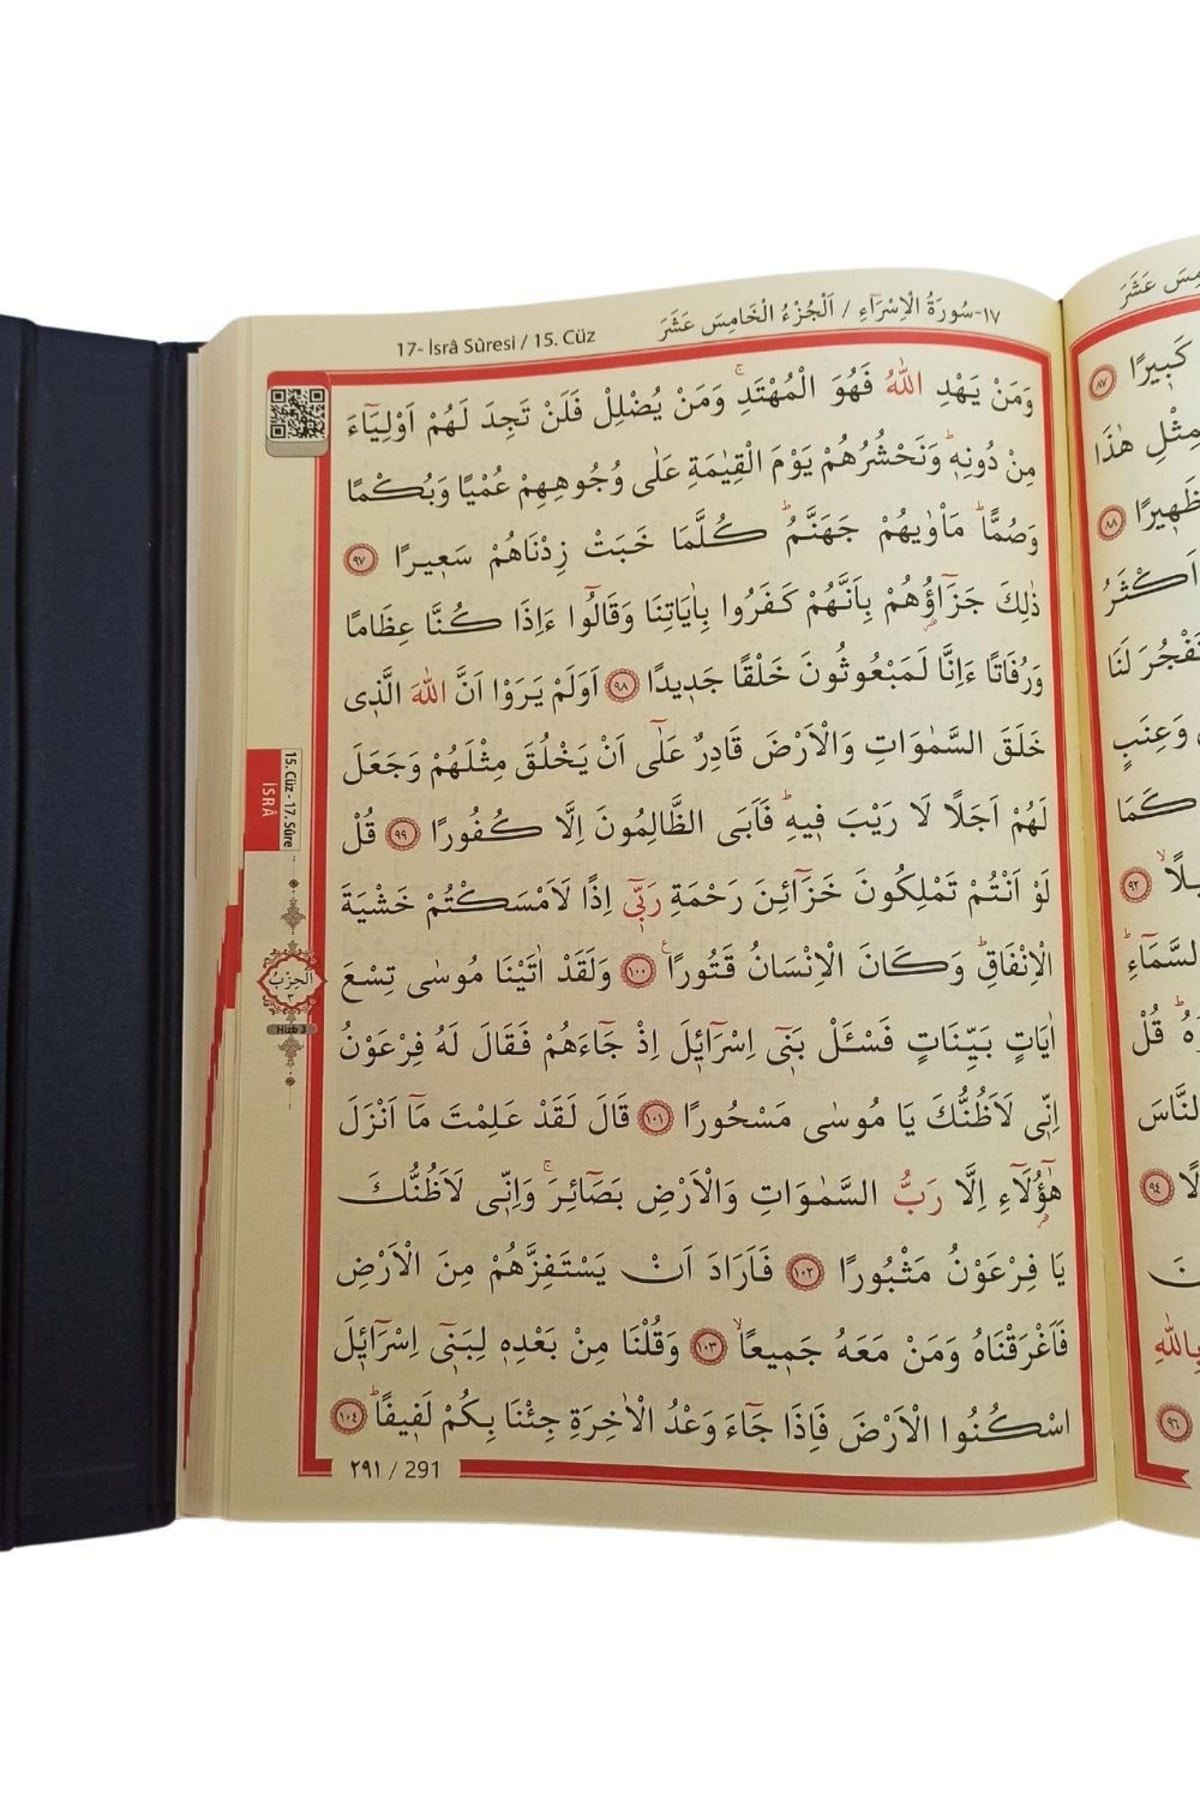 ١٧-سُورَةُ الْاِسْرَٓاءِ / اَلْجُزْءُ الْخَامِسَ عَشَرَ
17- İsrâ Sûresi / 15. Cüz
وَمَنْ يَهْدِ اللّٰهُ فَهُوَ الْمُهْتَدِۚ وَمَنْ يُضْلِلْ فَلَنْ تَجِدَ لَهُمْ اَوْلِيَٓاءَ
مِنْ دُونِه۪ۜ وَنَحْشُرُهُمْ يَوْمَ الْقِيٰمَةِ عَلٰى وُجُوهِهِمْ عُمْيًا وَبُكْمًا
وَصُمًّاۜ مَأْوٰيهُمْ جَهَنَّمُۜ كُلَّمَا خَبَتْ زِدْنَاهُمْ سَع۪يرًا ٩٧
ذٰلِكَ جَزَٓاؤُ۬هُمْ بِاَنَّهُمْ كَفَرُوا بِاٰيَاتِنَا وَقَالُٓوا ءَاِذَا كُنَّا عِظَامًا
وَرُفَاتًا ءَاِنَّا لَمَبْعُوثُونَ خَلْقًا جَد۪يدًا ٩٨ اَوَلَمْ يَرَوْا اَنَّ اللّٰهَ الَّذ۪ي
خَلَقَ السَّمٰوَاتِ وَالْاَرْضَ قَادِرٌ عَلٰٓى اَنْ يَخْلُقَ مِثْلَهُمْ وَجَعَلَ
لَهُمْ اَجَلًا لَا رَيْبَ ف۪يهِۜ فَاَبَى الظَّالِمُونَ اِلَّا كُفُورًا ٩٩ قُلْ
لَوْ اَنْتُمْ تَمْلِكُونَ خَزَٓائِنَ رَحْمَةِ رَبّ۪ٓي اِذًا لَاَمْسَكْتُمْ خَشْيَةَ
الْاِنْفَاقِۜ وَكَانَ الْاِنْسَانُ قَتُورًا۟ ١٠٠ وَلَقَدْ اٰتَيْنَا مُوسٰى تِسْعَ
اٰيَاتٍ بَيِّنَاتٍ فَسْـَٔلْ بَن۪ٓي اِسْرَٓائ۪لَ اِذْ جَٓاءَهُمْ فَقَالَ لَهُ فِرْعَوْنُ
اِنّ۪ي لَاَظُنُّكَ يَا مُوسٰى مَسْحُورًا ١٠١ قَالَ لَقَدْ عَلِمْتَ مَٓا اَنْزَلَ
هٰٓؤُ۬لَٓاءِ اِلَّا رَبُّ السَّمٰوَاتِ وَالْاَرْضِ بَصَٓائِرَۚ وَاِنّ۪ي لَاَظُنُّكَ
يَا فِرْعَوْنُ مَثْبُورًا ١٠٢ فَاَرَادَ اَنْ يَسْتَفِزَّهُمْ مِنَ الْاَرْضِ
فَاَغْرَقْنَاهُ وَمَنْ مَعَهُ جَم۪يعًاۙ ١٠٣ وَقُلْنَا مِنْ بَعْدِه۪ لِبَن۪ٓي اِسْرَٓائ۪لَ
اسْكُنُوا الْاَرْضَ فَاِذَا جَٓاءَ وَعْدُ الْاٰخِرَةِ جِئْنَا بِكُمْ لَف۪يفًاۜ ١٠٤
٢٩١ / 291
15. Cüz - 17. Sûre
İSRÂ
اَلْحِزْبُ
٣
Hizb 3
عَشَرَ
كَب۪يرًا ٨٧
مِثْلِ هٰذَا
ظَه۪يرًا ٨٨
اَكْثَرُ
تَفْجُرَ لَنَا
وَعِنَبٍ
كَمَا
٩٢
السَّمَٓاءِۜ
قُلْ
النَّاسَ
٩٤
بِاللّٰهِ
٩٦